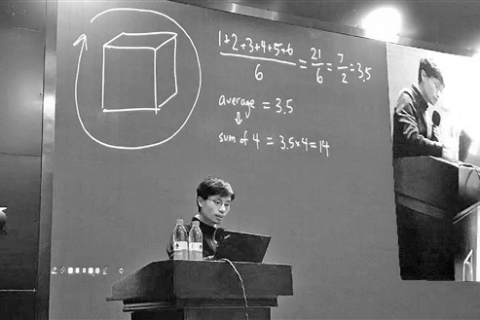 1+2+3+4+5+6 / 6 = 21 / 6 = 7 / 2 = 3.5
average = 3.5
⇓
sum of 4 = 3.5×4=14